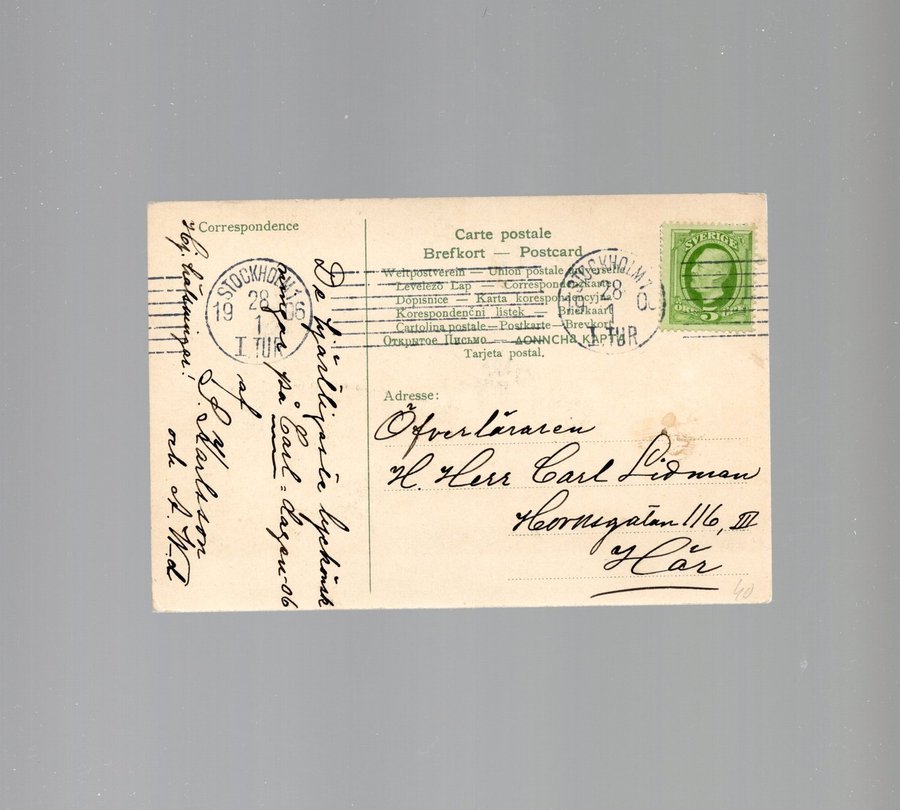 Correspondence
Carte postale
Brefkort — Postcard
Weltpostverein — Union postale universelle
Levelező Lap — Correspondenzkarte
Dopisnice — Karta korespondencyjna
Korespondenční listek — Briefkaart
Cartolina postale — Postkarte — Brevkort
Открытое Письмо — ΔΟΝΝCHA КАРТА
Tarjeta postal.
SVERIGE
5
STOCKHOLM 1
28
19 06
1
I TUR
STOCKHOLM 1
28
19 0
1
I TUR
Adresse:
Öfverläraren
H. Herr Carl Lidman
Hornsgatan 116, III
Här
40
De hjärtligaste lyckönsk
ningar på Carl-Dagen-06
af
P. Karlsson
och A. W-d
Hj. hälsningar!